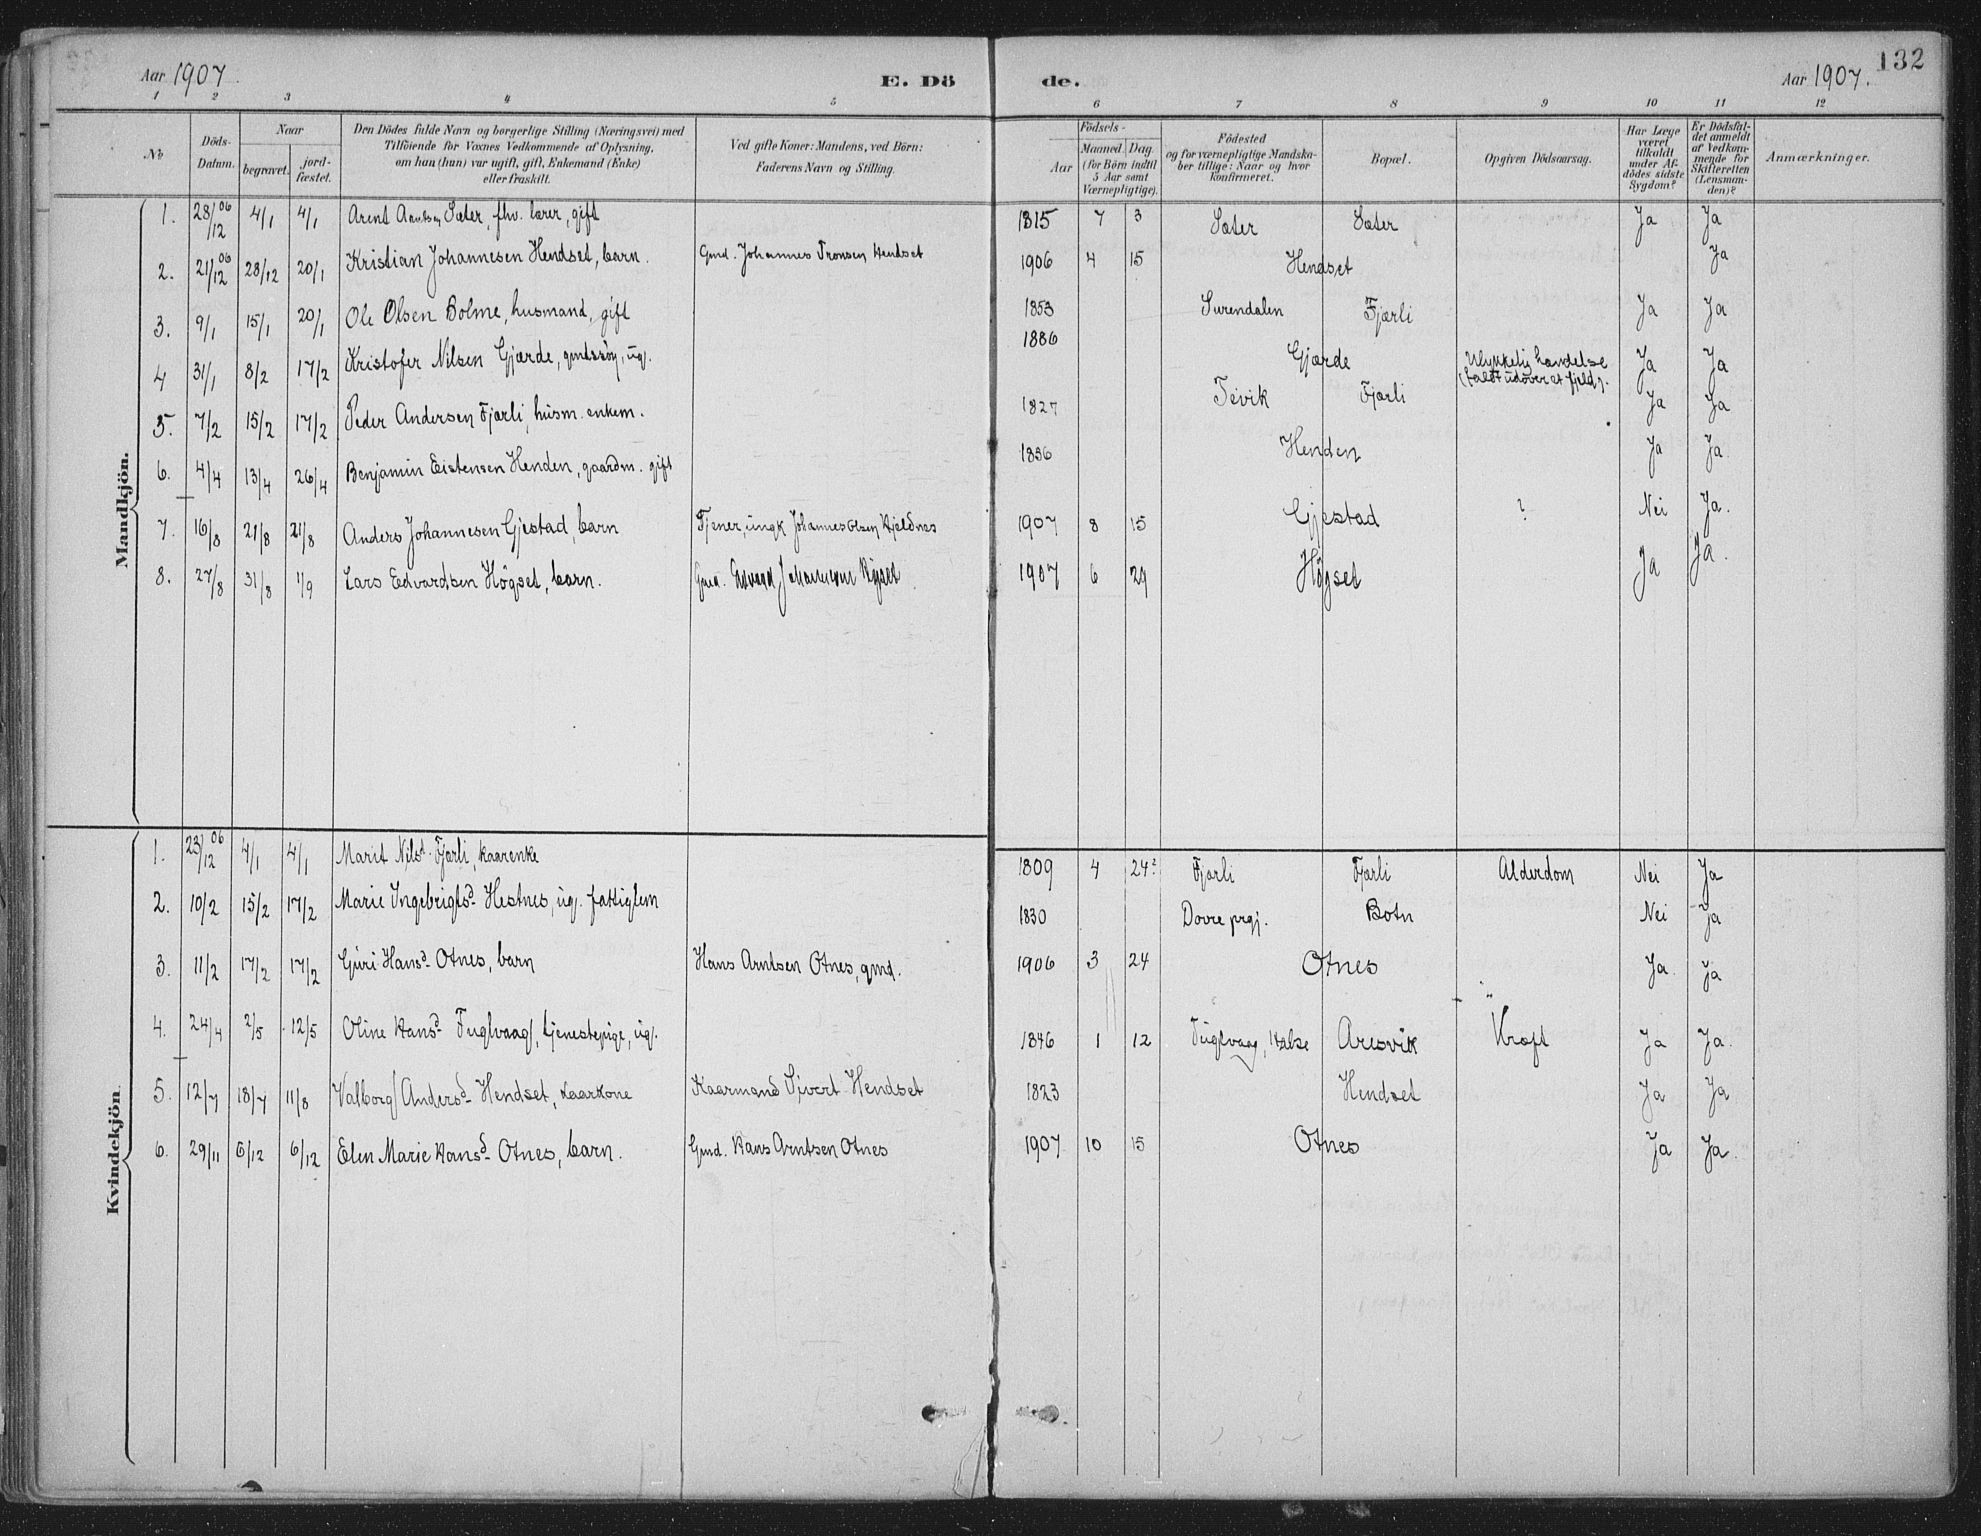 132
Aar 1907. E. Dö de. Aar 1907.
1 2 3 4 5 6 7 8 9 10 11 12
No. Döds-Datum. Naar begravet. jord-fæstet. Den Dödes fulde Navn og borgerlige Stilling (Næringsvei) med Tilföiende for Voxnes Vedkommende af Oplysning, om han (hun) var ugift, gift, Enkemand (Enke) eller fraskilt. Ved gifte Koner: Mandens, ved Börn: Faderens Navn og Stilling. Födsels- Aar Maaned. Dag. (for Börn indtil 5 Aar samt Værnepligtige). Födested og for værnepligtige Mandskaber tillige: Naar og hvor konfirmeret. Bopæl. Opgiven Dödsaarsag. Har Læge været tilkaldt under Afdödes sidste Sygdom? Er Dödsfaldet anmeldt af Vedkommende for Skifteretten (Lensmanden)? Anmærkninger.
Mandkjön.
1. 28/12 06 4/1 4/1 Arent Arntsen Sæter, fhv. lærer, gift 1815 7 3 Sæter Sæter Ja Ja
2. 21/12 06 28/12 20/1 Kristian Johannesen Hendset, barn. Gmd. Johannes Tronsen Hendset 1906 4 15 Hendset Ja
3. 9/1 15/1 20/1 Ole Olsen Bolme, husmand, gift 1853 Surendalen Fjærli Ja Ja
4 31/1 8/2 17/2 Kristofer Nilsen Gjærde, gmdssøn, ug. 1886 Gjærde Ulykkelig hændelse (faldt udover et fjeld). Ja Ja
5. 7/2 15/2 17/2 Peder Andersen Fjærli, husm. enkem. 1827 Teivik Fjærli Ja Ja
6. 4/4 13/4 26/4 Benjamin Eistensen Henden, gaardm. gift 1836 Henden Ja Ja.
7. 16/8 21/8 21/8 Anders Johannesen Gjestad, barn Tjener, ungk Johannes Olsen Kjeldnes 1907 8 15 Gjestad ? Nei Ja.
8. 27/8 31/8 1/9 Lars Edvardsen Högset, barn. Gmd. Edvard Högset 1907 6 29 Högset Ja Ja.
Kvindekjön.
1. 23/12 06 4/1 4/1 Marit Nilsd. Fjærli, kaarenke 1809 4 24? Fjærli Fjærli Alderdom Nei Ja
2. 10/2 15/2 17/2 Marie Ingebrigtsd. Hestnes, ug. fattiglem 1830 Dovre prgj. Botn Nei Ja
3. 11/2 17/2 17/2 Guri Hansd. Otnes, barn Hans Arntsen Otnes, gmd. 1906 3 24 Otnes Ja. Ja
4. 24/4 2/5 12/5 Oline Hansd. Fuglvaag, tjenestepige, ug. 1846 1 12 Fuglvaag, Halse Aresvik Kræft Ja Ja.
5. 12/7 18/7 11/8 Valborg Andersd. Hendset, kaarkone Kaarmand Sivert Hendset 1823 Hendset Ja Ja
6. 29/11 6/12 6/12 Elen Marie Hansd. Otnes, barn. Gmd. Hans Arntsen Otnes 1907 10 15 Otnes Ja Ja.